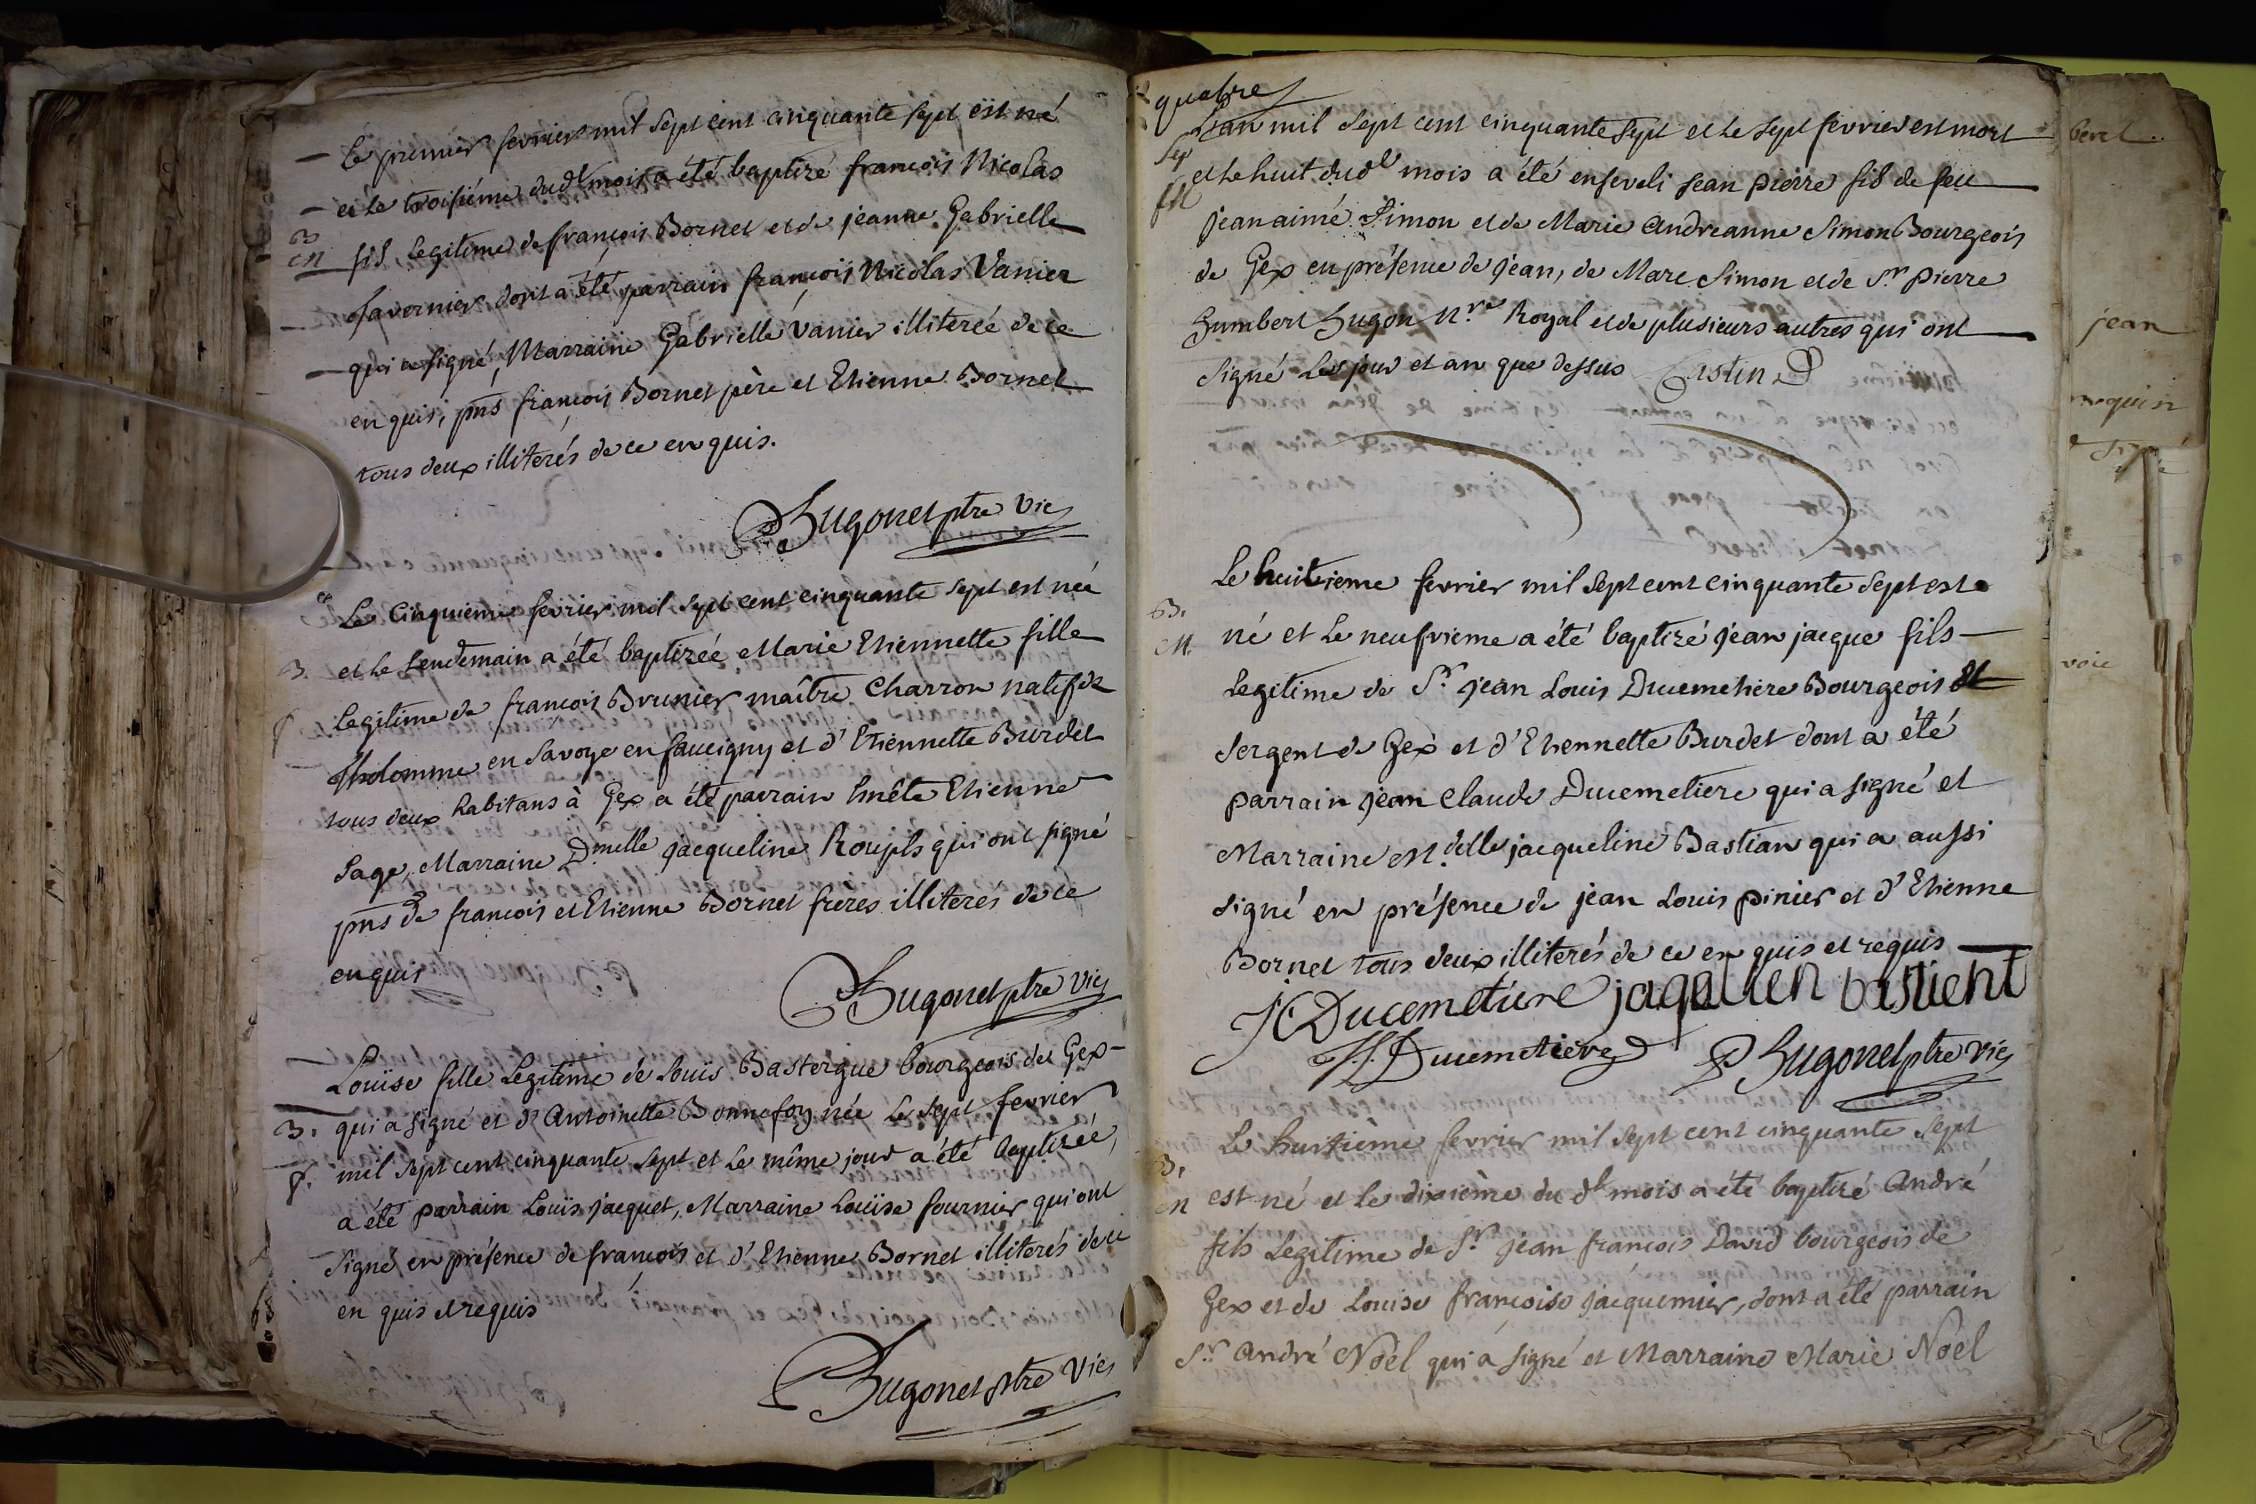 Le premier fevrier mil sept cent cinquante sept est né
et le troisiéme dudt mois a été baptizé françois Nicolas
B
M
fils legitime de françois Bornet et de jeanne Gabrielle
favernier dont a été parrain françois Nicolas Vanier
qui a signé, Marraine Gabrielle Vanier illiterée de ce
enquise, pñs françois Bornet père et Etienne Bornet
tous deux illiterés de ce enquis.
Hugonet ptre Vic
Le Cinquieme fevrier mil sept cent cinquante sept est née
B.
f
et le lendemain a été baptizéé Marie Etiennette fille
legitime de françois Brunier maître Charron natif de
en Savoye en faucigny et d'Etiennette Burdet
tous deux habitans à Gex a été parrain hnête Etienne
Sage, Marraine Dmelle jacqueline qui ont signé
pñs de françois et Etienne Bornet freres illiterés de ce
enquis
Hugonet ptre Vic
Louise fille Legitime de Louis Bastergue bourgeois de Gex
B.
f.
qui a signé et d'Antoinette Bonnefoy née le sept fevrier
mil sept cent cinquante sept et le même jour a été baptizéé,
a été parrain Louis jacquet, Marraine Louise fournier qui ont
signé en présence de françois et d'Etienne Bornet illiterés de ce
en quis et requis
Hugonet ptre Vic
quatre
L'an mil sept cent cinquante sept et le sept fevrier est mort
Sep
M
et le huit dudt mois a été enseveli jean pierre fils de feu
jean aimé Simon et de Marie Andreanne Simon Bourgeois
de Gex en présence de jean, de Marc Simon et de Sr pierre
humbert hugon Nre Royal et de plusieurs autres qui ont
signé les jour et an que dessus Castin
Le huitieme fevrier mil sept cent cinquante sept est
B.
M.
né et le neufvieme a été baptizé jean jacque fils
legitime de Sr. jean Louis Ducemetiere Bourgeois et
sergent de Gex et d'Etiennette Burdet dont a été
parrain jean Claude Ducemetiere qui a signé et
Marraine M.delle jacqueline Bastian qui a aussi
signé en présence de jean Louis pinier et d'Etienne
Bornet tous deux illiterés de ce enquis et requis
JC Ducemetiere jaqulien bastient
Ducemetiere Hugonet ptre Vic
Le huitième fevrier mil sept cent cinquante sept
B.
M
est né et le dixième du dt mois a été baptizé André
fils Legitime de Sr. jean françois David bourgeois de
Gex et de Louise françoise jacquemier, dont a été parrain
Sr. André Noël qui a signé et Marraine Marie Noël
jean
voie